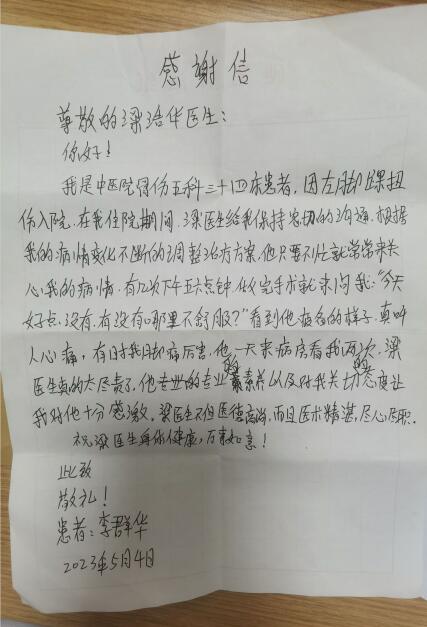 感谢信
尊敬的梁浩华医生：
你好！
我是中医院骨伤五科三十四床患者，因左脚踝扭
伤入院，在我住院期间，梁医生给我保持密切的沟通，根据
我的病情变化不断的调整治疗方案，他只要不忙就常常来关
心我的病情，有几次下午五六点钟，做完手术就来问我："今天
好点没有，有没有哪里不舒服？"看到他疲惫的样子，真叫
人心痛，有时我脚痛厉害，他一天来病房看我两次，梁
医生真的太尽责了，他专业的专业的素养以及对我关切的态度让
我对他十分感激，梁医生不但医德高尚，而且医术精湛，尽心尽职。
祝梁医生身体健康，万事如意！
此致
敬礼！
患者：李群华
2023年5月4日